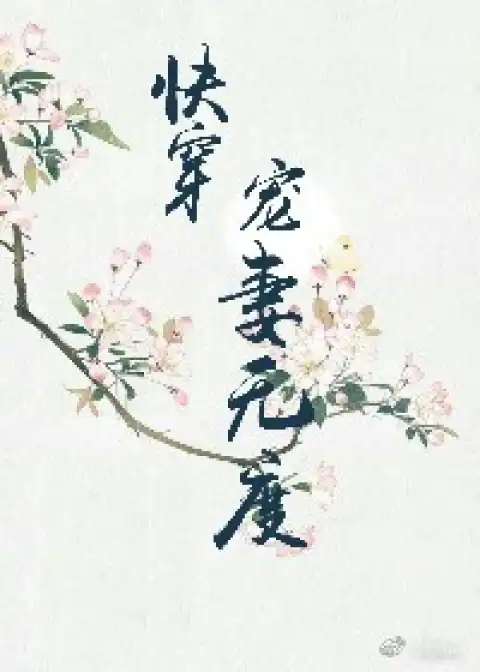 快穿
宠妻无度